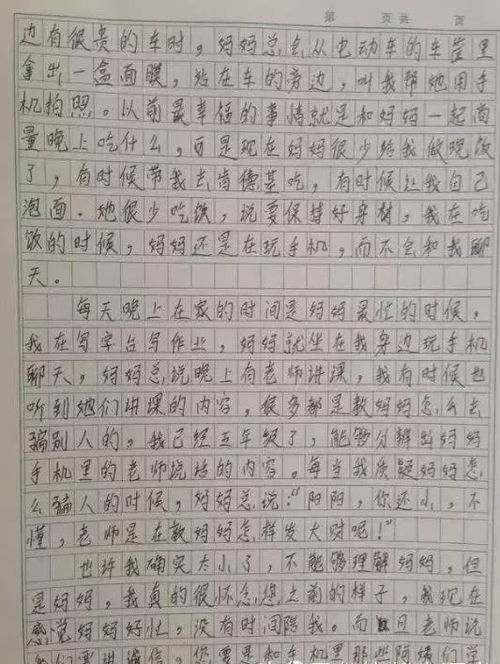 第 页 共 页
边有很贵的车时，妈妈总会从电动车的车筐里
拿出一盒面膜，站在车的旁边，叫我帮她用手
机拍照。以前最幸福的事情就是和妈妈一起商
量晚上吃什么，可是现在妈妈很少给我做晚饭
了，有时候带我去肯德基吃，有时候让我自己
泡面．她很少吃饭，说要保持好身材，我在吃
饭的时候，妈妈还是在玩手机，而不会和我聊
天。
每天晚上在家的时间是妈妈最忙的时候，
我在写字台写作业，妈妈就坐在我身边玩手机
聊天，妈妈总说晚上有老师讲课，我有时候也
听到她们讲课的内容，很多都是教妈妈怎么去
骗别人的，我已经五年级了，能够分辨出妈妈
手机里的老师说话的内容。每当我质疑妈妈怎
么骗人的时候，妈妈总说：“阳阳，你还小，不
懂，老师是在教妈妈怎样发大财呢！”
也许我确实太小了，不能够理解妈妈，但
是妈妈，我真的很怀念您之前的样子，我现在
感觉妈妈好忙，没有时间陪我。而且老师说
我们要讲诚信，你要是和手机里那些阿姨们学